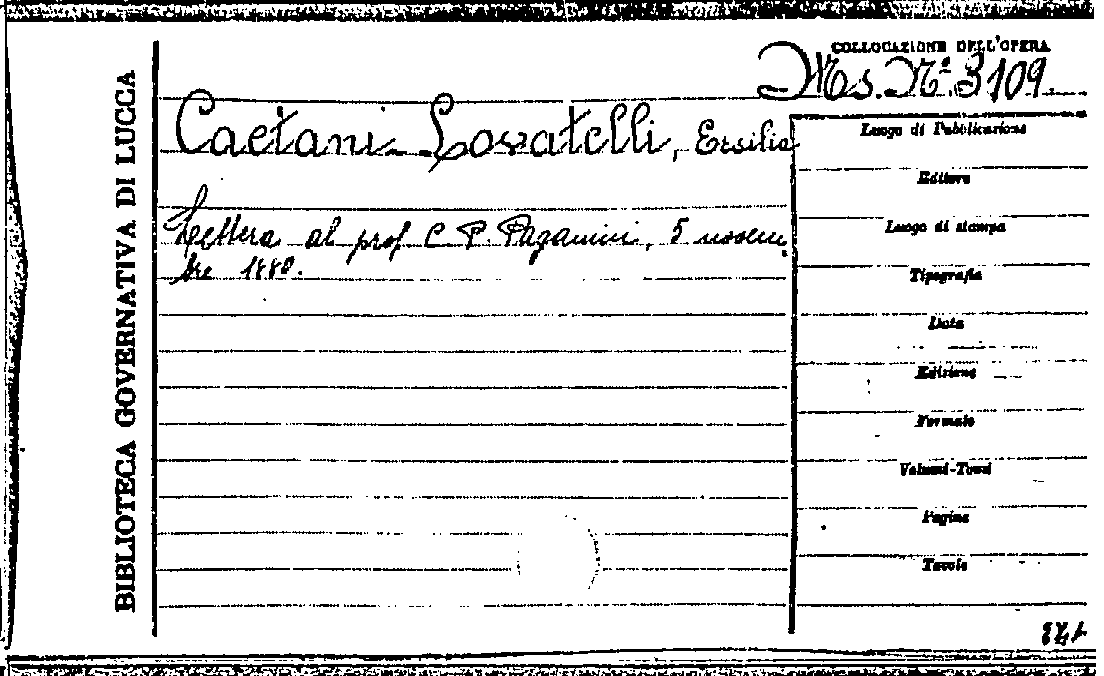 BIBLIOTECA GOVERNATIVA DI LUCCA
COLLOCAZIONE DELL'OPERA
Ms. Nº 3109
Caetani Lovatelli, Ersilia
Lettera al prof. C. P. Paganini, 5 novem
bre 1880.
Luogo di Pubblicazione
Editore
Luogo di stampa
Tipografia
Data
Edizione
Formato
Volumi-Tomi
Pagine
Tavole